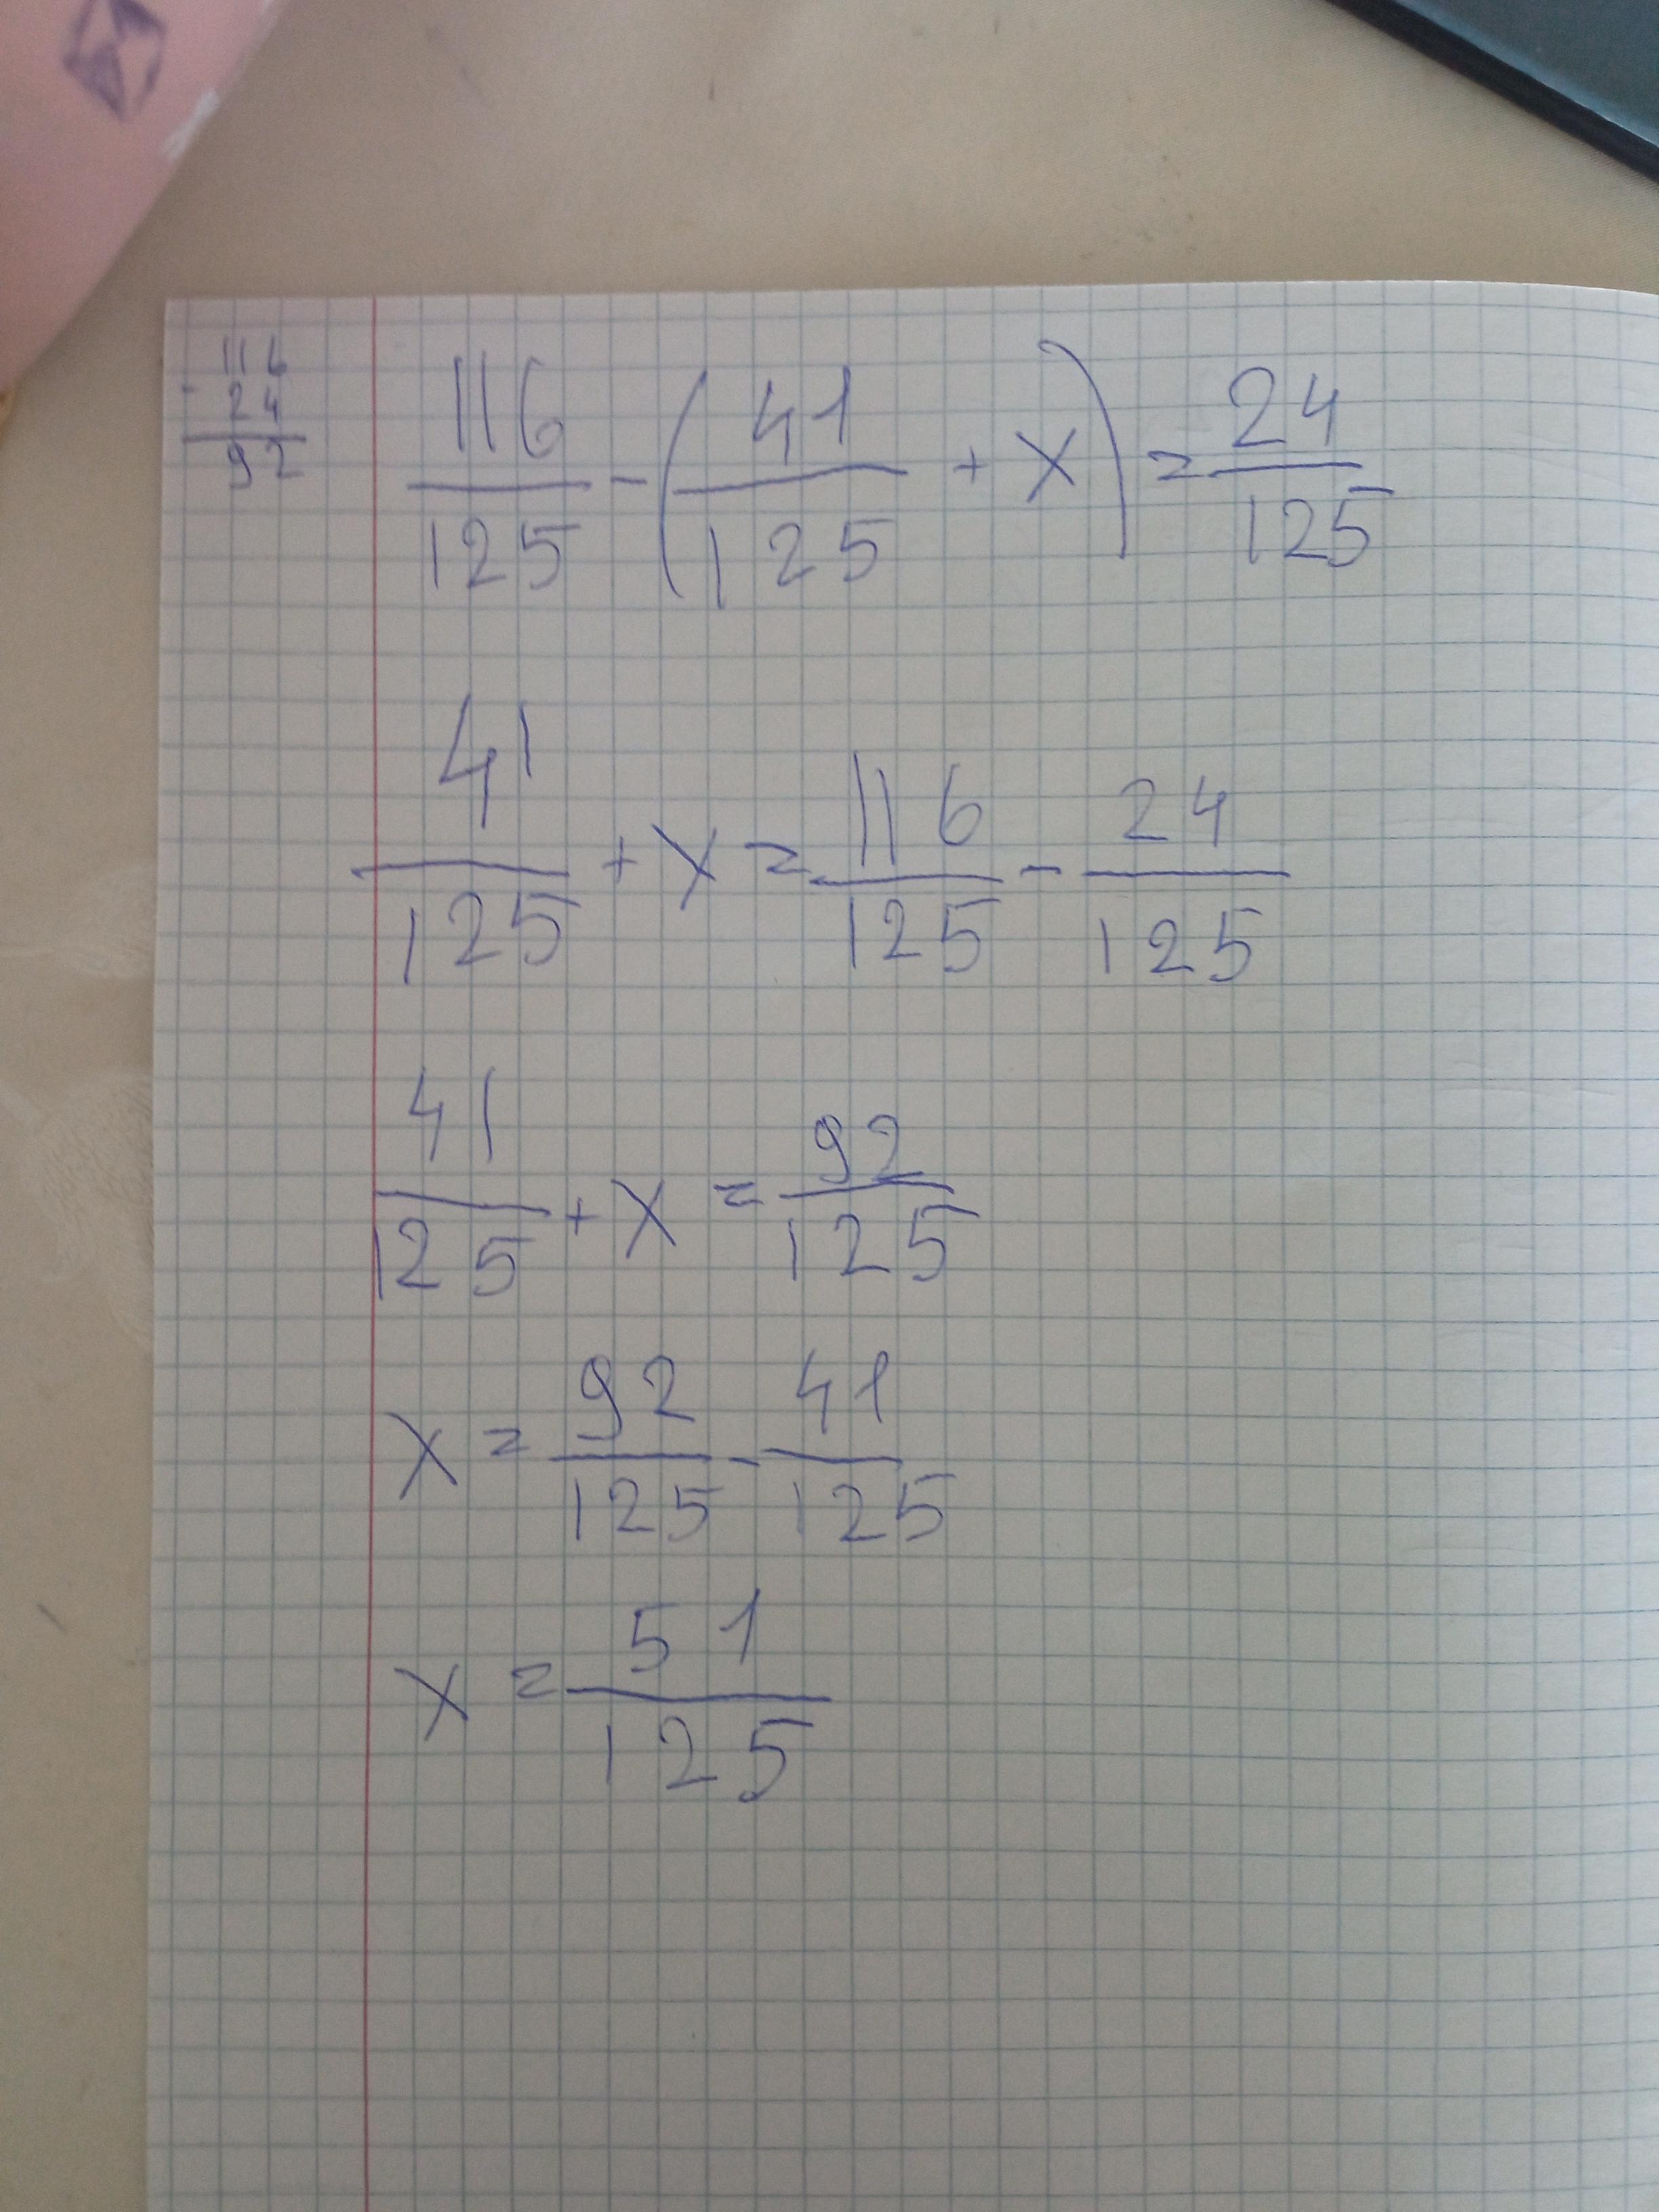 116
- 24
92
116/125 - (41/125 + x) = 24/125
41/125 + x = 116/125 - 24/125
41/125 + x = 92/125
x = 92/125 - 41/125
x = 51/125